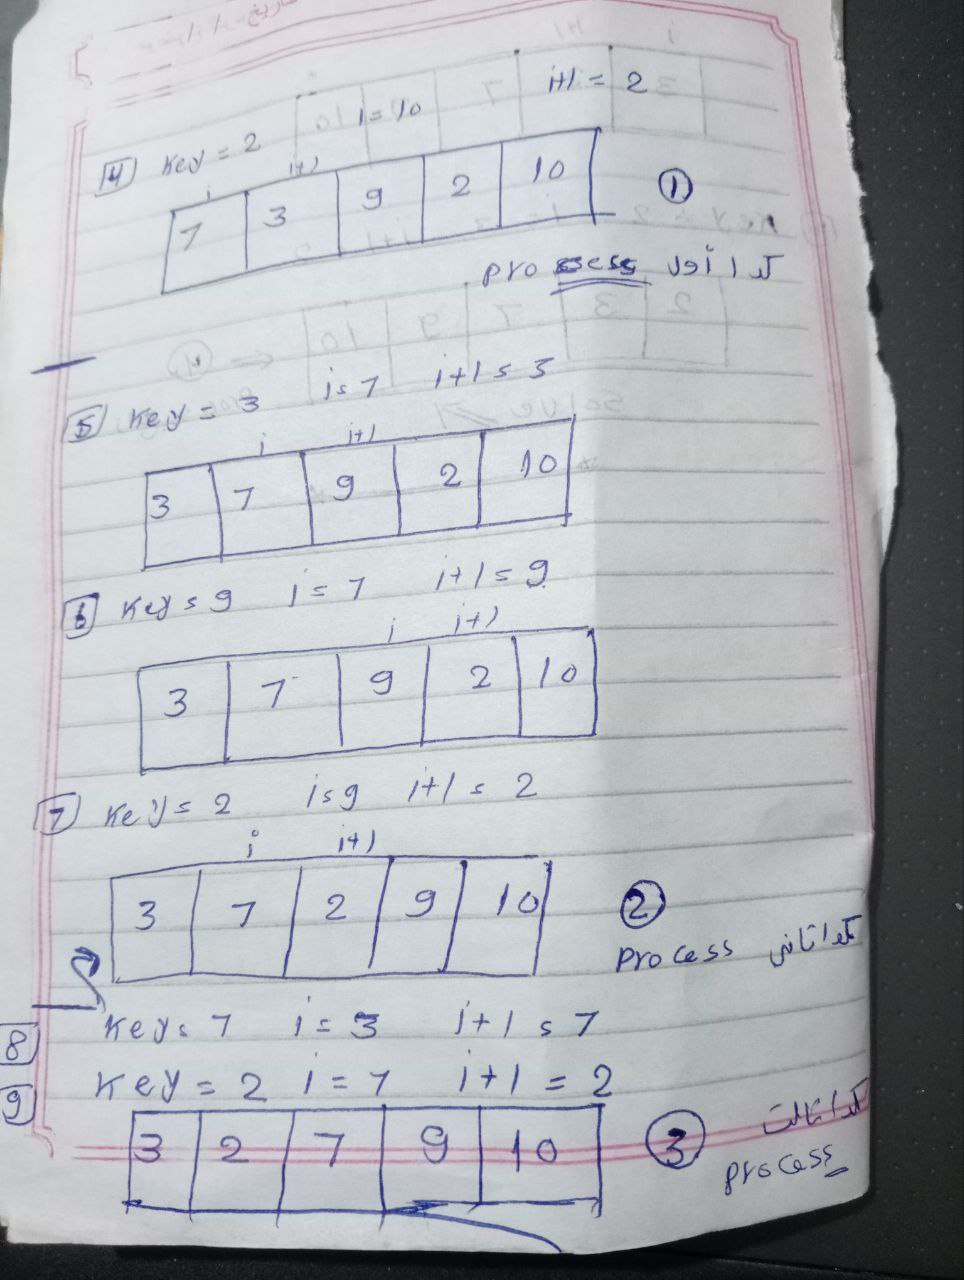 4 Key = 2 i = 10 i+1 = 2
i i+1
7 3 9 2 10 1
كدا أول process
5 Key = 3 i = 7 i+1 = 3
i i+1
3 7 9 2 10
6 Key = 9 i = 7 i+1 = 9
i i+1
3 7 9 2 10
7 Key = 2 i = 9 i+1 = 2
i i+1
3 7 2 9 10 2
كدا تاني process
8 Key = 7 i = 3 i+1 = 7
9 Key = 2 i = 7 i+1 = 2
3 2 7 9 10 3
كدا تالت
process